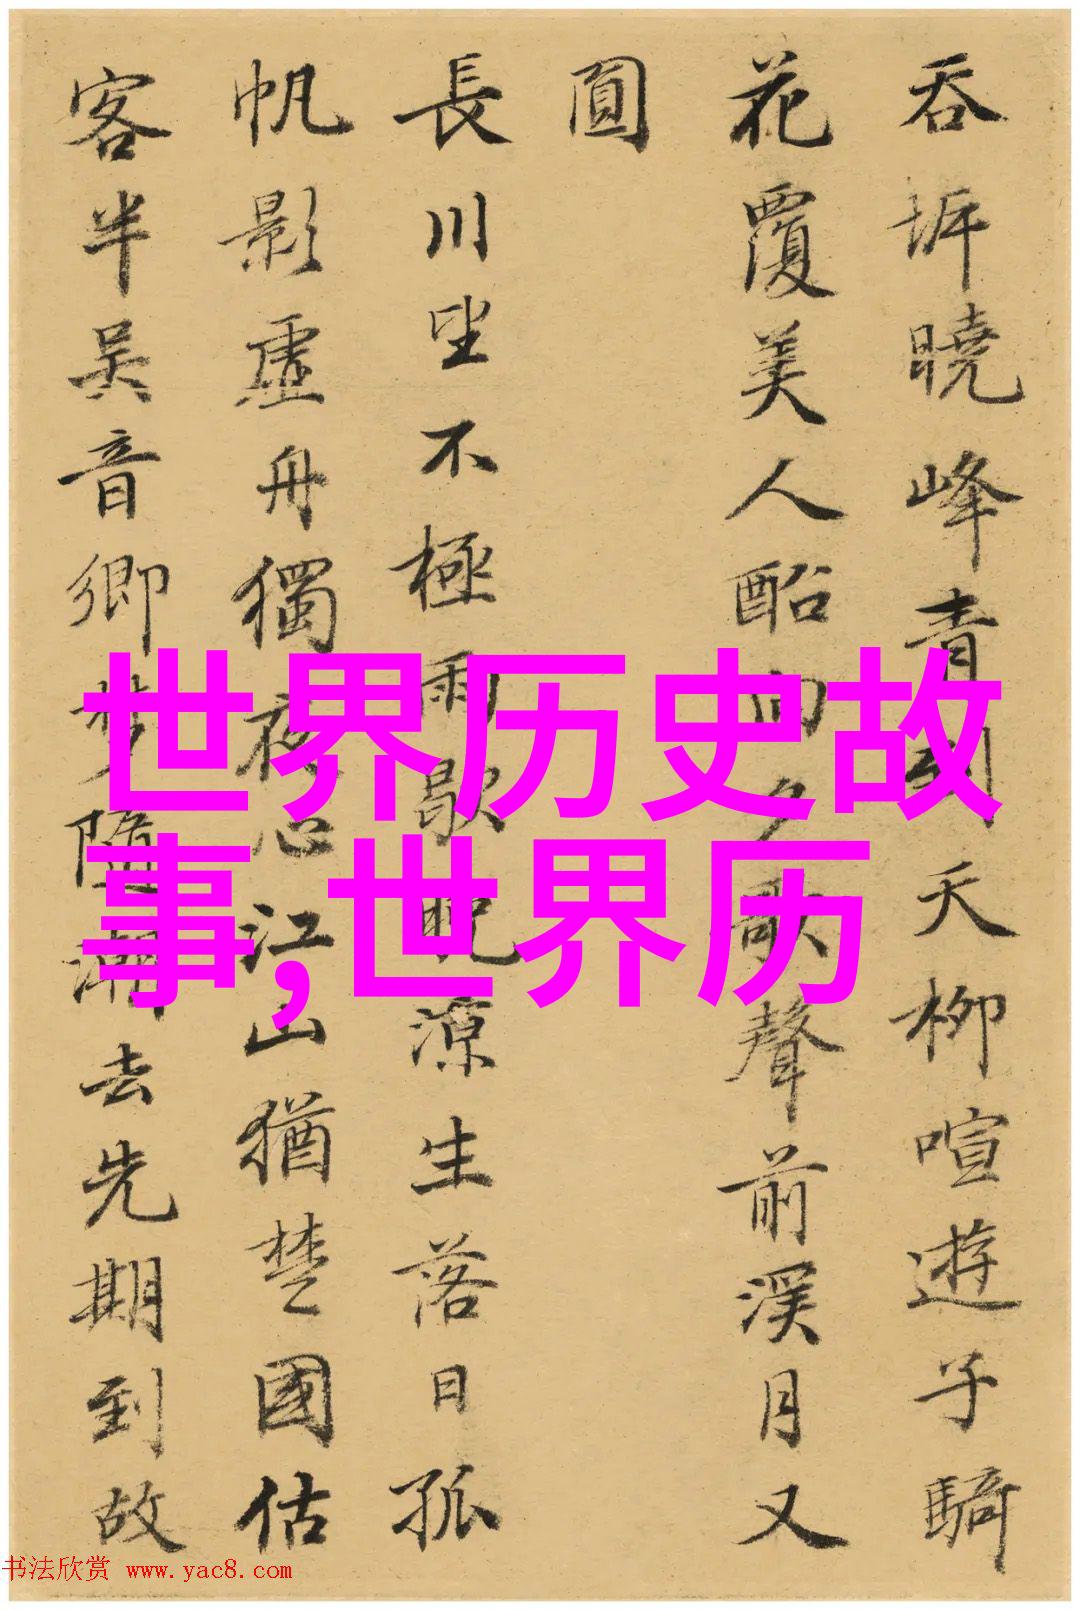 吞坼曉峰青到天柳喧遊子騎
花覆美人酩向夕歌聲前溪月又
圓
長川坐不極雨歇晚涼生落日孤
帆影虛舟獨夜心江山猶楚國估
客半吳音鄉夢隨潮去先期到故
世界历史故
事,世界历
书法欣赏 www.yac8.com